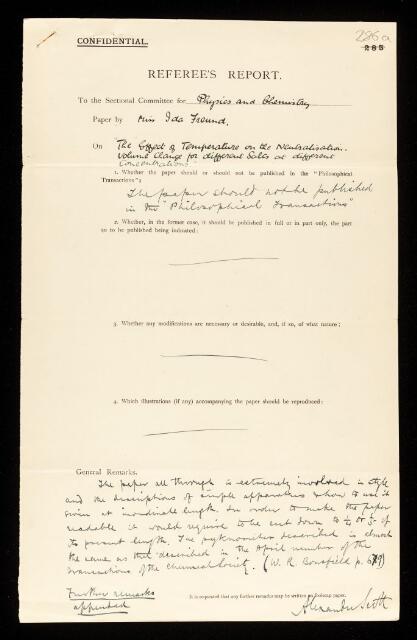 CONFIDENTIAL.
286a
285
REFEREE'S REPORT.
To the Sectional Committee for Physics and Chemistry
Paper by Miss Ida Freund,
On The Effect of Temperature on the Neutralisation-
volume change for different Salts at different
concentrations
1. Whether the paper should or should not be published in the "Philosophical
Transactions":
The paper should not be published
in the "Philosophical Transactions"
2. Whether, in the former case, it should be published in full or in part only, the part
so to be published being indicated:
3. Whether any modifications are necessary or desirable, and, if so, of what nature:
4. Which illustrations (if any) accompanying the paper should be reproduced:
General Remarks.
The paper all through is extremely involved in style
and the descriptions of simple apparatus & how to use it
given at inordinate length. In order to make the paper
readable it would require to be cut down to ½ or ⅓ of
its present length. The pyknometer described is almost
the same as that described in the April number of the
Transactions of the Chemical Society. (W. R. Bousfield p. 679)
Further remarks
appended
It is requested that any further remarks may be written on foolscap paper.
Alexander Scott